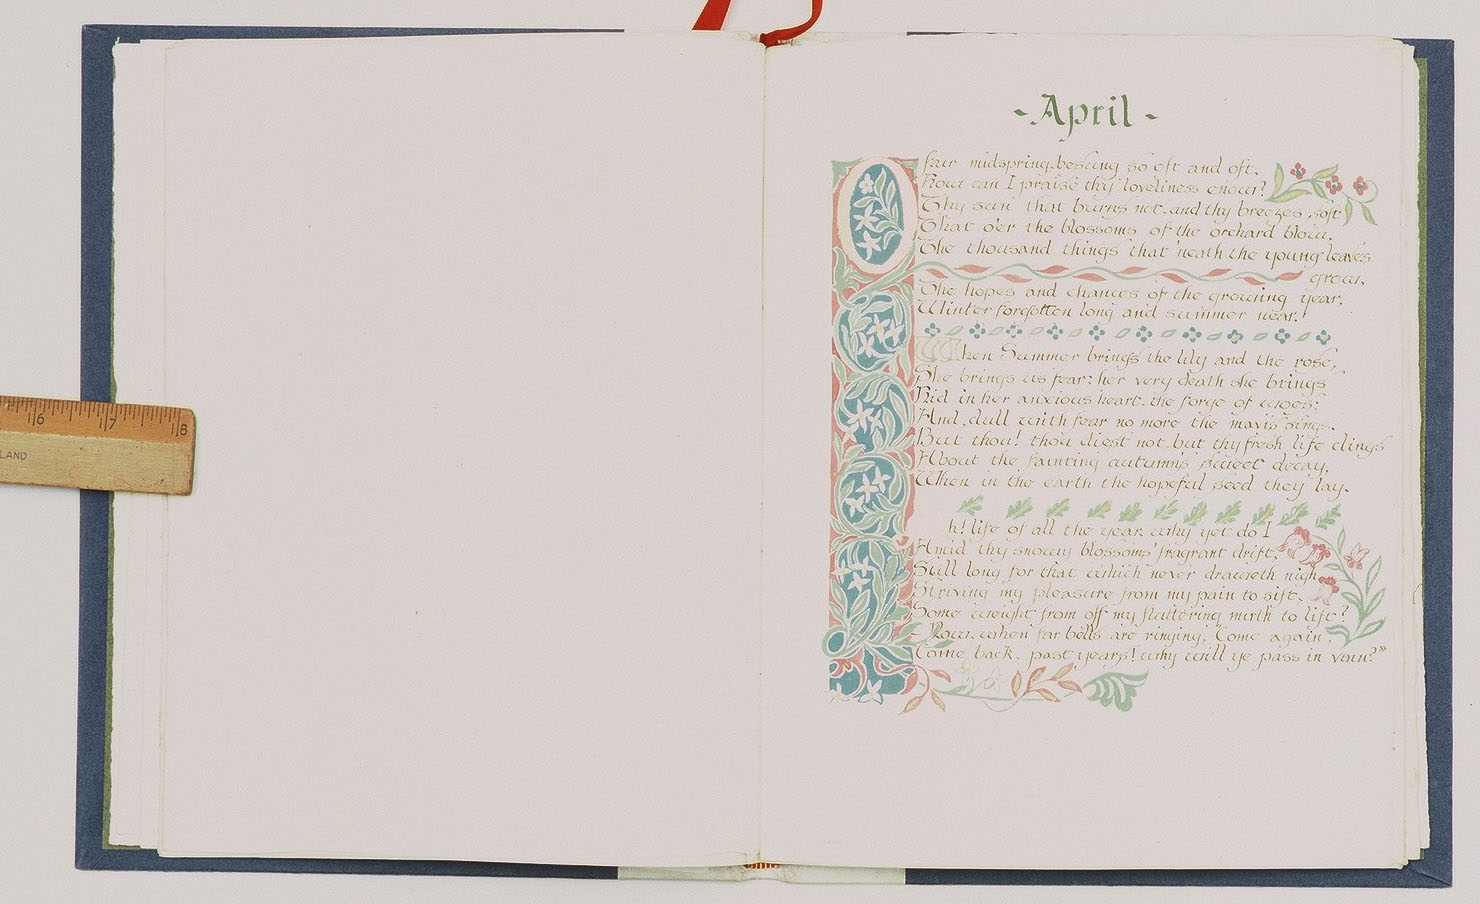 16 17 18
LAND
~April~
O fair midspring, besung so oft and oft,
How can I praise thy loveliness enow?
Thy sun that burns not, and thy breezes soft
That o'er the blossoms of the orchard blow,
The thousand things that 'neath the young leaves
grow,
The hopes and chances of the growing year,
Winter forgotten long and summer near.
When Summer brings the lily and the rose,
She brings us fear: her very death she brings
Hid in her anxious heart, the forge of woes;
And, dull with fear no more the mavis sings.
But thou! thou diest not, but thy fresh life clings
About the fainting autumn's sweet decay,
When in the earth the hopeful seed they lay.
h! life of all the year, why yet do I
Amid thy snowy blossoms' fragrant drift,
Still long for that which never draweth nigh,
Striving my pleasure from my pain to sift,
Some weight from off my fluttering mirth to lift?
Now, when far bells are ringing, "Come again,
Come back, past years! why will ye pass in vain?"